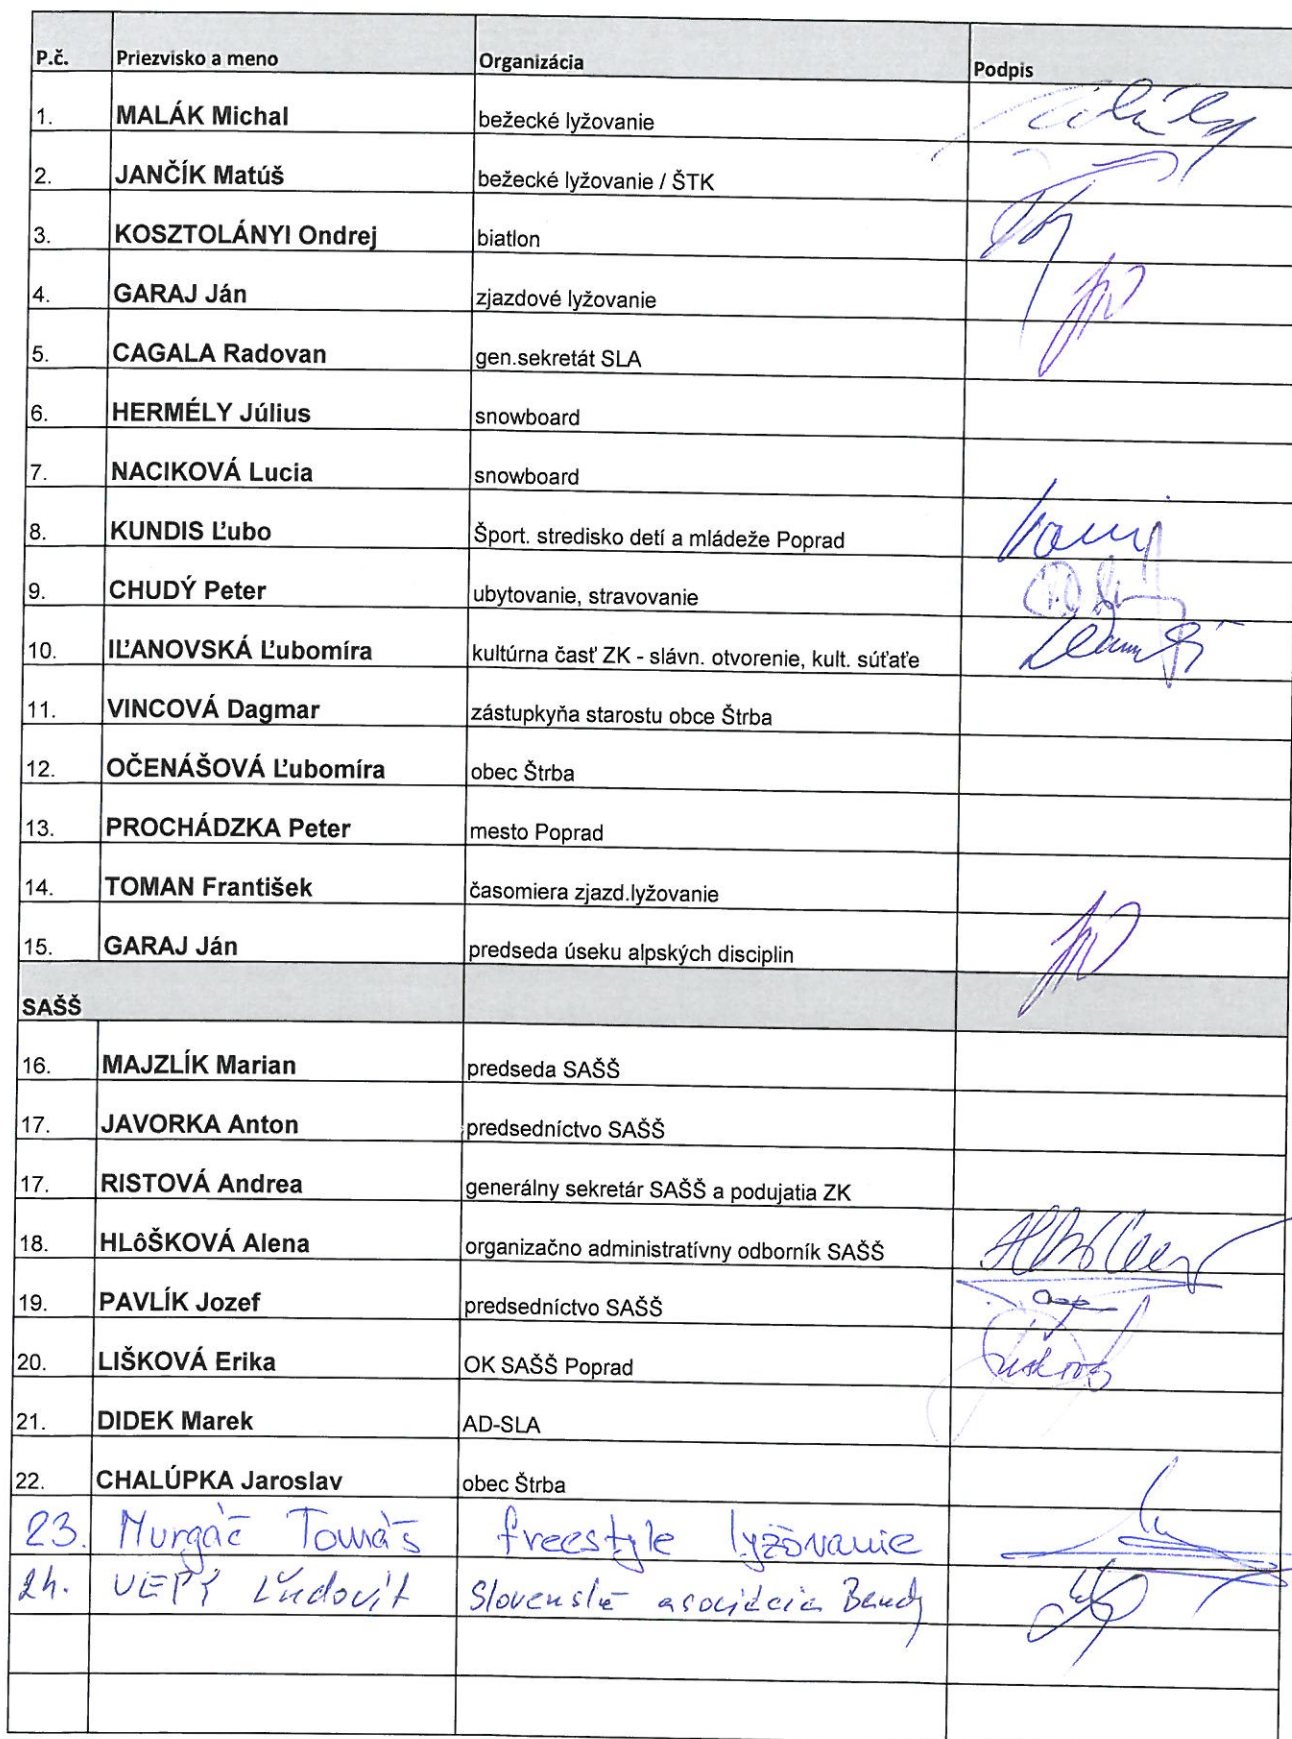 P.č. Priezvisko a meno Organizácia Podpis
1. MALÁK Michal bežecké lyžovanie
2. JANČÍK Matúš bežecké lyžovanie / ŠTK
3. KOSZTOLÁNYI Ondrej biatlon
4. GARAJ Ján zjazdové lyžovanie
5. CAGALA Radovan gen.sekretát SLA
6. HERMÉLY Július snowboard
7. NACIKOVÁ Lucia snowboard
8. KUNDIS Ľubo Šport. stredisko detí a mládeže Poprad
9. CHUDÝ Peter ubytovanie, stravovanie
10. IĽANOVSKÁ Ľubomíra kultúrna časť ZK - slávn. otvorenie, kult. súťaťe
11. VINCOVÁ Dagmar zástupkyňa starostu obce Štrba
12. OČENÁŠOVÁ Ľubomíra obec Štrba
13. PROCHÁDZKA Peter mesto Poprad
14. TOMAN František časomiera zjazd.lyžovanie
15. GARAJ Ján predseda úseku alpských disciplin
SAŠŠ
16. MAJZLÍK Marian predseda SAŠŠ
17. JAVORKA Anton predsedníctvo SAŠŠ
17. RISTOVÁ Andrea generálny sekretár SAŠŠ a podujatia ZK
18. HLôŠKOVÁ Alena organizačno administratívny odborník SAŠŠ
19. PAVLÍK Jozef predsedníctvo SAŠŠ
20. LIŠKOVÁ Erika OK SAŠŠ Poprad
21. DIDEK Marek AD-SLA
22. CHALÚPKA Jaroslav obec Štrba
23. Murgáč Tomáš freestyle lyžovanie
24. Ľudovít Slovenská asociácia Bandy